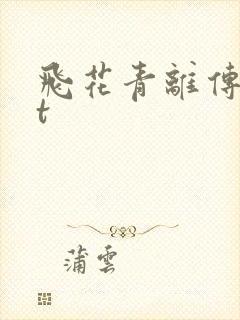 飛花青離傳
t
蒲雲